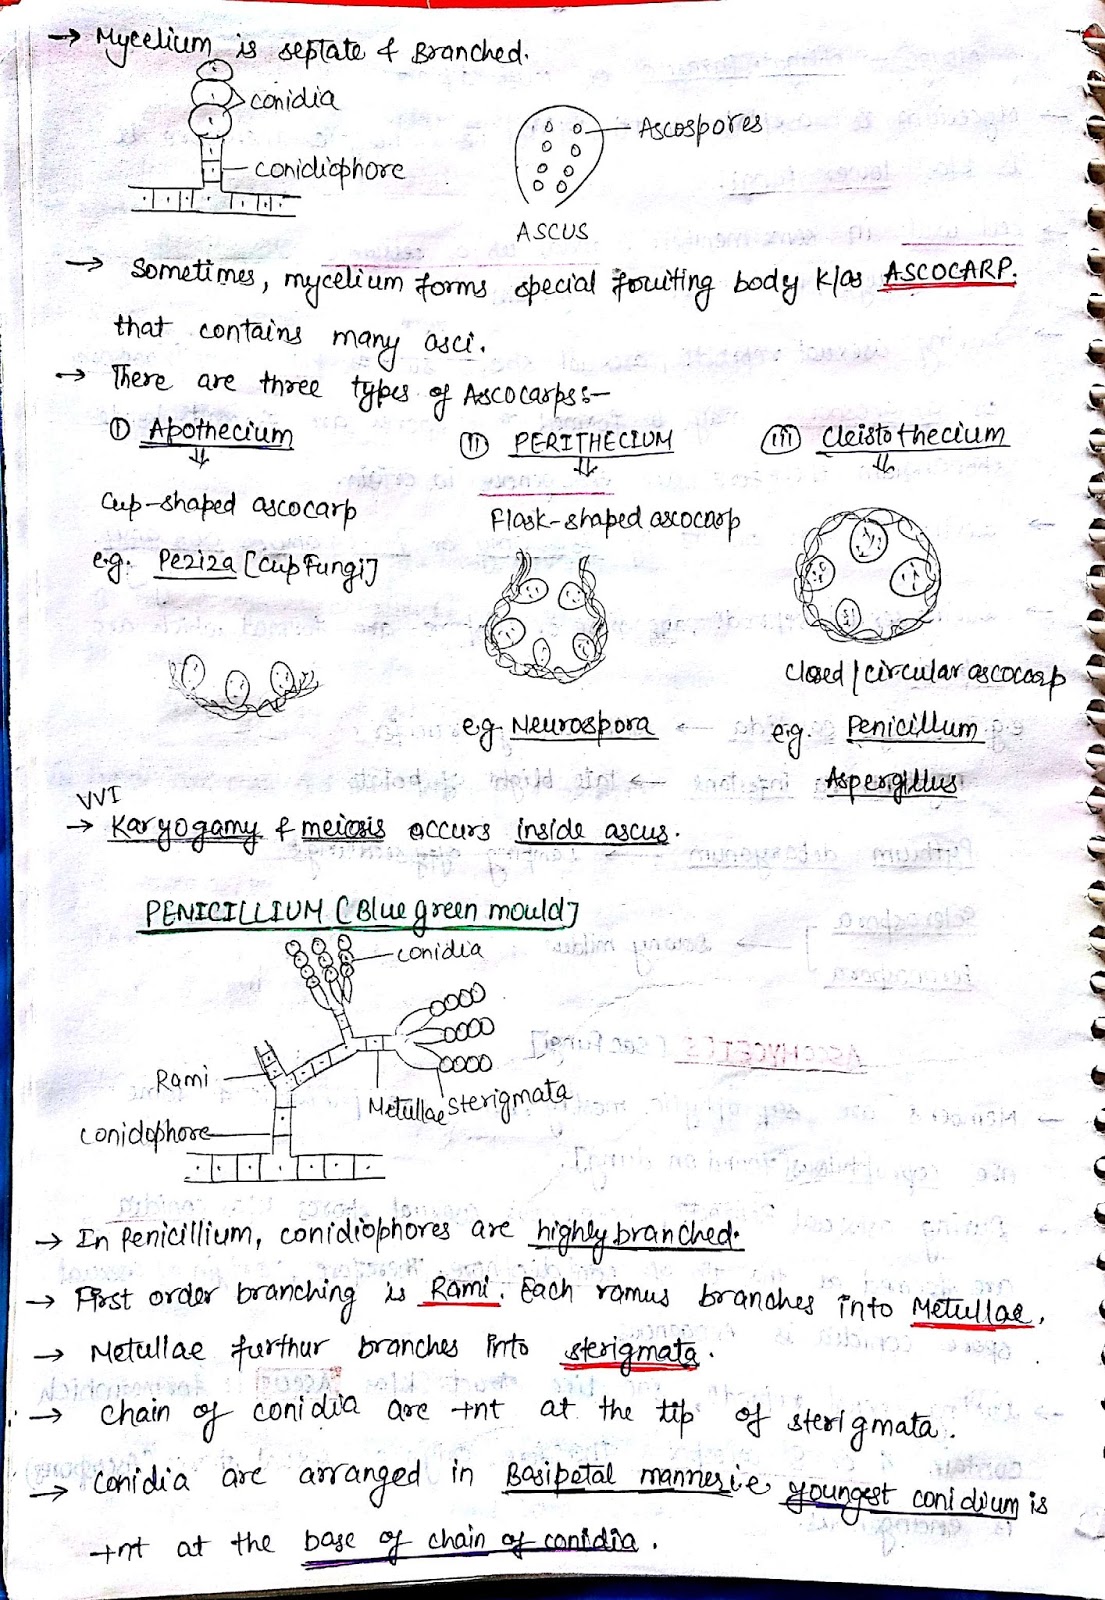 → Mycelium is septate & Branched.
conidia
conidiophore
Ascospores
ASCUS
→ Sometimes, mycelium forms special fruiting body k/as ASCOCARP.
that contains many asci.
→ There are three types of Ascocarps:-
(I) Apothecium
(II) PERITHECIUM
(III) Cleistothecium
Cup-shaped ascocarp
Flask-shaped ascocarp
e.g. Peziza [Cup Fungi]
Closed / circular ascocarp
e.g. Neurospora
e.g. Penicillum
Aspergillus
VVI
→ Karyogamy & meiosis occurs inside ascus.
PENICILLIUM [Blue green mould]
conidia
Rami
Metullae
sterigmata
conidophore
→ In Penicillium, conidiophores are highly branched.
→ First order branching is Rami. Each ramus branches into Metullae.
→ Metullae furthur branches into sterigmata.
→ chain of conidia are +nt at the tip of sterigmata.
→ conidia are arranged in Basipetal manner i.e, youngest conidium is
+nt at the base of chain of conidia.